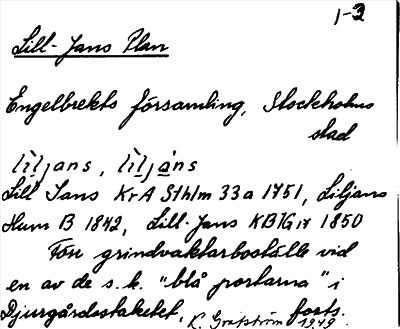 1-3
Lill-Jans Plan
Engelbrekts församling, Stockholms
stad
lìljans, lìljáns
Lill Jans KrA Sthlm 33a 1751, Liljans
Hum B 1842, Lill-Jans KBIG 17 1850
Förr grindvaktarboställe vid
en av de s.k. "blå portarna" i
Djurgårdsstaketet. forts.
K. Grafström 1949